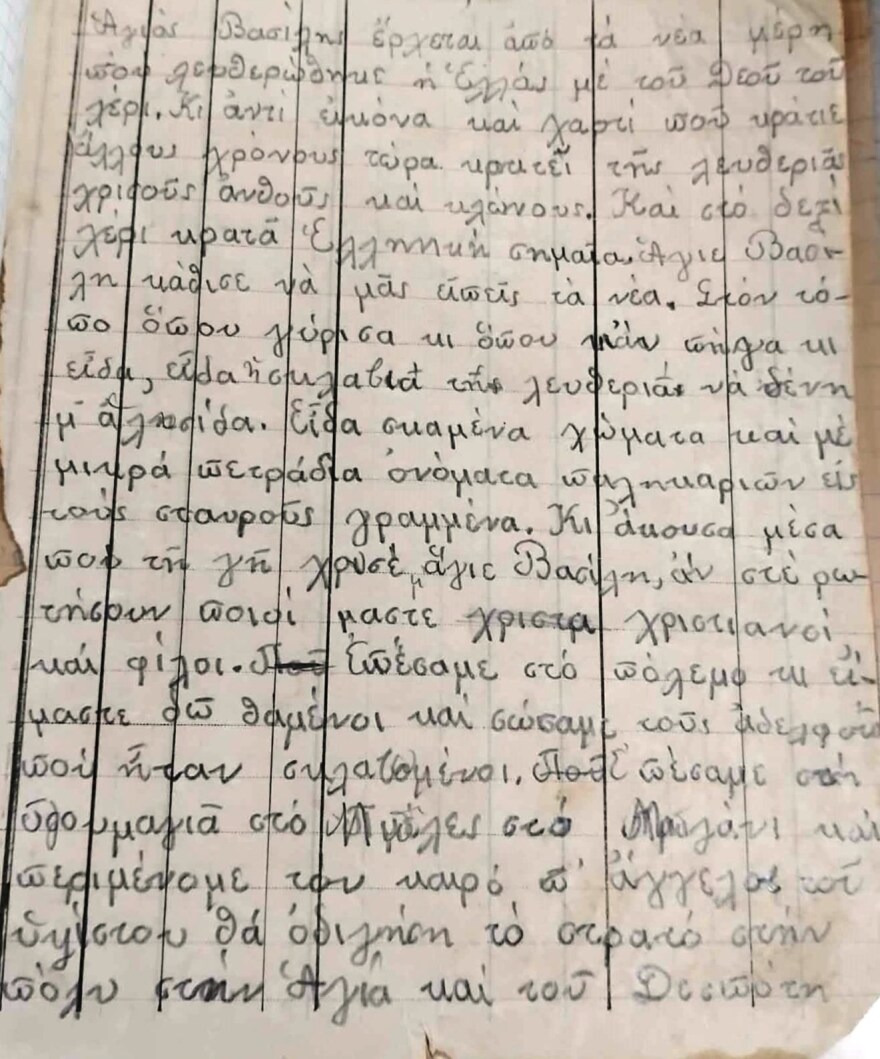 Ἁγιὸς Βασίλης ἔρχεται ἀπὸ τὰ νέα μέρη
ποὺ λευθερώθηκε ἡ Ἑλλάς μὲ τοῦ Θεοῦ τοῦ
χέρι. Κι ἀντί εἰκόνα καὶ χαρτί ποῦ κράτιε
ἄλλους χρόνους τώρα κρατεῖ τῆς λευθεριᾶς
χρισοῦς ἀνθοῦς καὶ κλώνους. Καὶ στὸ δεξὶ
χέρι κρατᾶ Ἑλληνική σημαία. Ἅγιε Βασί-
λη κάθισε νὰ μᾶς εἰπεῖς τὰ νέα. Στὸν τό-
πο ὅπου γύρισα κι ὅπου κἂν πῆγα κι
εἶδα, εἶδα ἡ σκλαβιὰ τῆς λευθεριᾶς νὰ δένη
μ' ἁλυσίδα. Εἶδα σκαμένα χώματα καὶ μὲ
μικρά πετράδια ὀνόματα παληκαριῶν εἰς
τοὺς σταυροῦς γραμμένα. Κι ἄκουσα μέσα
ποὺ τῆ γῆ χρυσέ μ ἅγιε Βασίλη, ἄν στέ ρω-
τήσουν ποιοί μαστε χριστα χριστιανοί
καί φίλοι. Ἐπέσαμε στὸ πόλεμο κι εἴ-
μαστε δῶ θαμένοι καὶ σώσαμε τοὺς ἀδελφοῦ
ποὺ ἦταν σκλαβομένοι. Ἐπέσαμε στὴ
ὀθουμαγιᾶ στὸ Μπέλες στὸ καὶ
περιμένομε τον καιρό π' ἄγγελος τοῦ
ὑψίστου θά ὁδιγήση τὸ στρατό στὴν
πόλυ στὴν Ἁγιᾶ καὶ τοῦ Δεσπότη